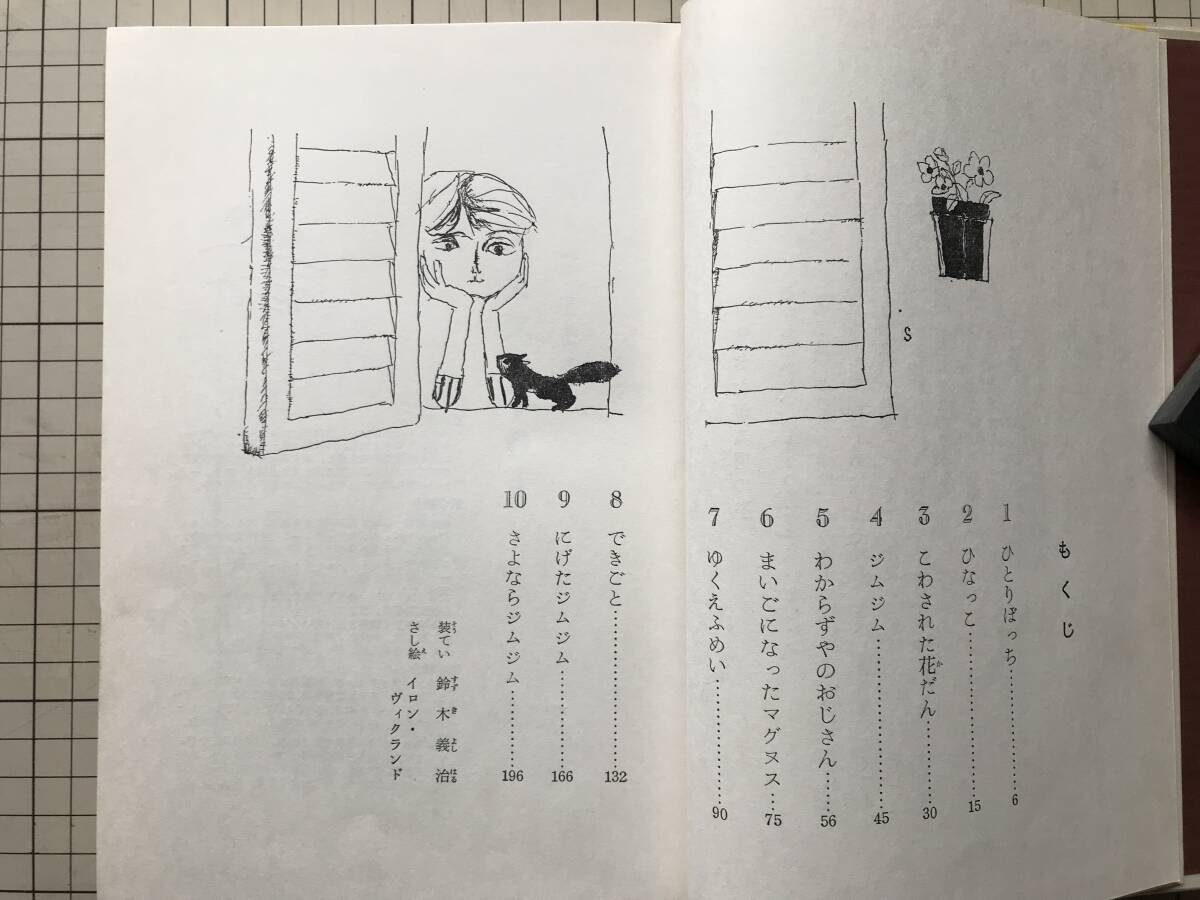 もくじ
1 ひとりぼっち……………6
2 ひなっこ……………15
3 こわされた花だん……………30
4 ジムジム……………45
5 わからずやのおじさん……56
6 まいごになったマグヌス…75
7 ゆくえふめい……………90
8 できごと……………132
9 にげたジムジム……………166
10 さよならジムジム……………196
装てい 鈴木義治
さし絵 イロン・ヴィクランド
S